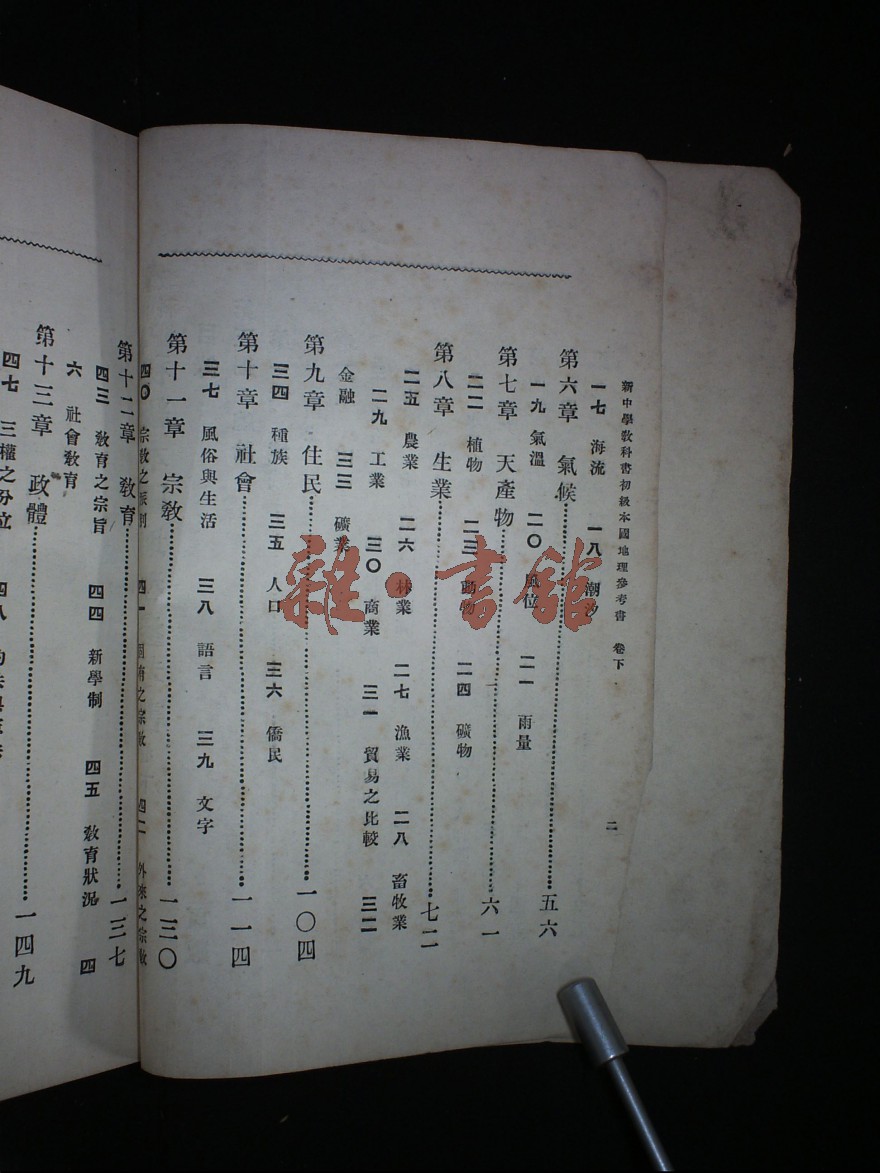 新中學教科書初級本國地理參考書 卷下
二
一七 海流 一八 潮汐
第六章 氣候 五六
一九 氣溫 二〇 風位 二一 雨量
第七章 天產物 六一
二二 植物 二三 動物 二四 礦物
第八章 生業 七二
二五 農業 二六 林業 二七 漁業 二八 畜牧業
二九 工業 三〇 商業 三一 貿易之比較 三二
金融 三三 礦業
第九章 住民 一〇四
三四 種族 三五 人口 三六 僑民
第十章 社會 一一四
三七 風俗與生活 三八 語言 三九 文字
第十一章 宗教 一三〇
四〇 宗教之派別 四一 固有之宗教 四二 外來之宗教
第十二章 教育 一三七
四三 教育之宗旨 四四 新學制 四五 教育狀況 四
六 社會教育
第十三章 政體 一四九
四七 三權之分立 四八
雜·書館